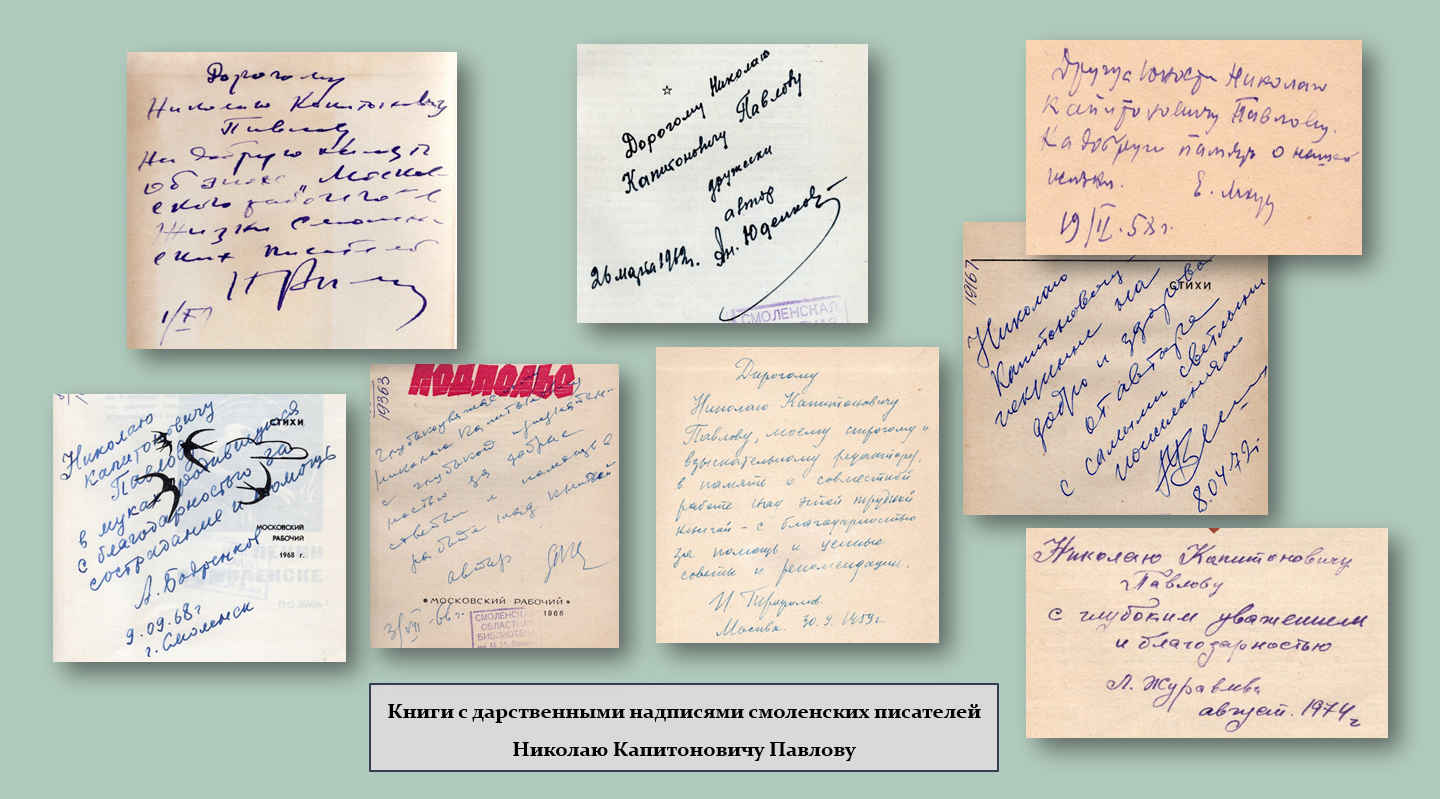 Дорогому
Николаю Капитоновичу
Павлову
На добрую память
об эпохе „Москов-
ского рабочего" в
жизни смолен-
ских писателей
☆
Дорогому Николаю
Капитоновичу Павлову
дружески
автор
26 марта 1962г. Ан. Юденков
СМОЛЕНСКАЯ
Друга Юности Николаю
Капитоновичу Павлову.
На добрую память о нашей
жизни. Е.
19/II.58г.
1967
СТИХИ
Николаю
Капитоновичу
искренне на
добро и здоровье
от автора
с самыми светлыми
пожеланиями
8.04.72г.
СТИХИ
Николаю
Капитоновичу
Павлову
в муках родившуюся
с благодарностью за
сострадание и помощь
МОСКОВСКИЙ
РАБОЧИЙ
1968 г.
А. Бояренков
9.09.68г
г. Смоленск
ЛЕНИН
СМОЛЕНСКЕ
ПОДПОЛЬЕ
19363
Глубокоуважаемому
Николаю Капитоновичу
с глубокой признатель-
ностью за добрые
советы и помощь в
работе над книгой
автор
• МОСКОВСКИЙ РАБОЧИЙ •
1966
СМОЛЕНСКАЯ
ОБЛАСТНАЯ
БИБЛИОТЕКА
Дорогому
Николаю Капитоновичу
Павлову, моему строгому и
взыскательному редактору,
в память о совместной
работе над этой трудной
книгой – с благодарностью
за помощь и ценные
советы и рекомендации.
И.
Москва. 30.9.1959г.
Николаю Капитоновичу
Павлову
с глубоким уважением
и благодарностью
Л. Журавлева
август. 1974г
Книги с дарственными надписями смоленских писателей
Николаю Капитоновичу Павлову